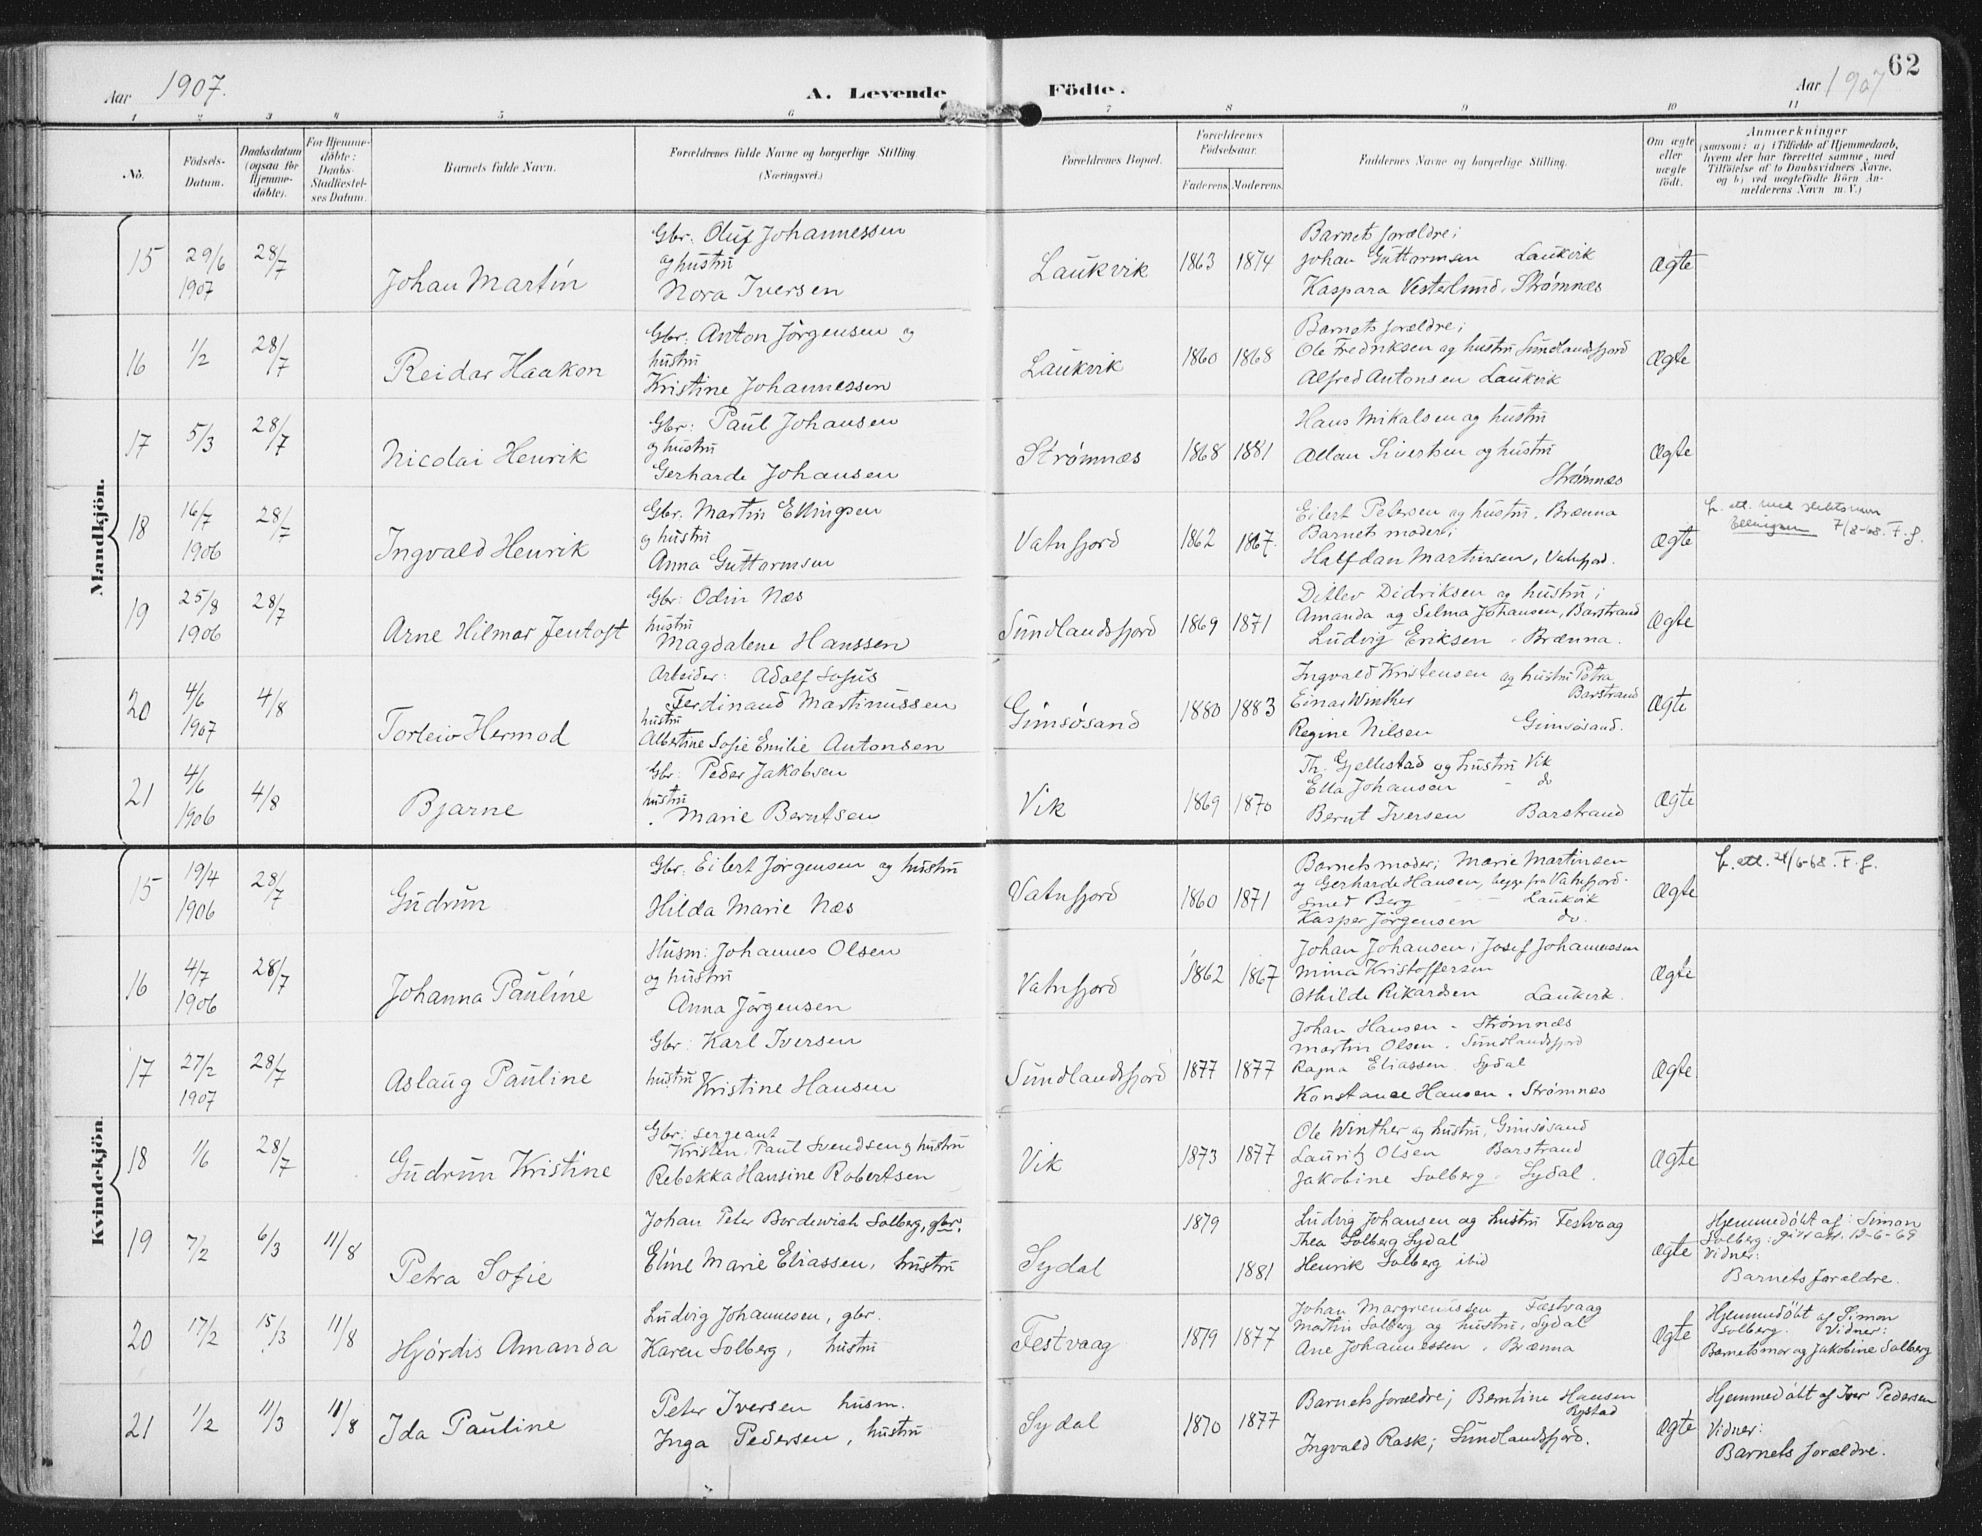 62
Aar 1907.
A. Levende
Födte.
Aar 1907
1 2 3 4 5 6 7 8 9 10 11
No.
Födsels-
Datum.
Daabsdatum
(ogsaa for
Hjemme-
döbte).
For Hjemme-
döbte:
Daabs-
Stadfæstel-
ses Datum.
Barnets fulde Navn.
Forældrenes fulde Navne og borgerlige Stilling
(Næringsvei.)
Forældrenes Bopæl.
Forældrenes
Födselsaar.
Faderens. Moderens.
Faddernes Navne og borgerlige Stilling.
Om ægte
eller
uægte
födt.
Anmærkninger
(saasom: a) i Tilfælde af Hjemmedaab,
hvem der har forrettet samme, med
Tilföielse af to Daabsvidners Navne,
og b) ved uægtefödte Börn An-
melderens Navn m. V.)
Mandkjön.
15 29/6 1907 28/7 Johan Martin
Gbr: Oluf Johannessen
og hustru
Nora Iversen
Laukvik 1863 1874
Barnets forældre;
Johan Guttormsen Laukvik
Kaspara Vesterlund, Strømnæs
Ægte
16 1/2 28/7 Reidar Haakon
Gbr: Anton Jørgensen og
hustru
Kristine Johannessen
Laukvik 1860 1868
Barnets forældre;
Ole Fredriksen og hustru Sundlandsfjord
Alfred Antonsen Laukvik
Ægte
17 5/3 28/7 Nicolai Henrik
Gbr: Paul Johansen
og hustru
Gerharde Johansen
Strømnæs 1868 1881
Hans Mikalsen og hustru
Allan Sivertsen og hustru
Strømnæs
Ægte
18 16/7 1906 28/7 Ingvald Henrik
Gbr: Martin Ellingsen
og hustru
Anna Guttormsen
Vatnfjord 1862 1867.
Eilert Petersen og hustru, Brænna
Barnets moder;
Halfdan Martinsen, Vatnfjord.
Ægte
f. att. med slektsnavn
Ellingsen 7/8-68. F.f.
19 25/8 1906 28/7 Arne Hilmar Jentoft
Gbr: Odin Næs
hustru
Magdalene Hanssen
Sundlandsfjord 1869 1871
Ditlev Didriksen og hustru;
Amanda og Selma Johansen, Barstrand
Ludvig Eriksen. Brænna.
Ægte
20 4/6 1907 4/8 Torleiv Hermod
Arbeider: Adolf Sofus
Ferdinand Martinussen
hustru
Albertine Sofie Emilie Antonsen
Gimsøsand 1880 1883
Ingvald Kristensen og hustru Petra
Barstrand
Einar Winther
Regine Nilsen Gimsøsand.
Ægte
21 4/6 1906 4/8 Bjarne
Gbr: Peder Jakobsen
hustru
Marie Berntsen
Vik 1869 1870
Th. Gjellestad og hustru Vik
Ella Johansen - do
Bernt Iversen Barstrand
Ægte
Kvindekjön.
15 19/4 1906 28/7 Gudrun
Gbr: Eilert Jørgensen og hustru
Hilda Marie Næs
Vatnfjord 1860 1871
Barnets moder; Marie Martinsen
og Gerharde Hansen, begge fra Vatnfjord.
Smed Berg - - Laukvik
Kasper Jørgensen do.
Ægte
f. att. 24/6-68. F.f.
16 4/7 1906 28/7 Johanna Pauline
Husm: Johannes Olsen
og hustru
Anna Jørgensen
Vatnfjord 1862 1867
Johan Johansen; Josef Johannessen
Mina Kristoffersen
Othilde Rikardsen Laukvik.
Ægte
17 27/2 1907 28/7 Aslaug Pauline
Gbr: Karl Iversen
hustru Kristine Hansen
Sundlandsfjord 1877 1877
Johan Hansen - Strømnæs
Martin Olsen. Sundlandsfjord
Ragna Eliassen. Sydal
Konstance Hansen. Strømnæs
Ægte
18 1/6 28/7 Gudrun Kristine
Gbr: sergeant
Kristen Paul Svendsen og hustru
Rebekka Hansine Robertsen
Vik 1873 1877
Ole Winther og hustru, Gimsøsand
Lauritz Olsen Barstrand
Jakobine Solberg. Sydal.
Ægte
19 7/2 6/3 11/8 Petra Sofie
Johan Peter Bordewich Solberg, gbr.
Eline Marie Eliassen, hustru
Sydal 1879 1881
Ludvig Johansen og hustru Festvaag
Thea Solberg Sydal
Henrik Solberg ibid
Ægte
Hjemmedöbt af: Simon
Solberg: givv att. 12-6-69
Vidner:
Barnets forældre.
20 17/2 15/3 11/8 Hjørdis Amanda
Ludvig Johannesen, gbr.
Karen Solberg, hustru
Festvaag 1879 1877
Johan Margrenssen, Fæstvaag
Martin Solberg og hustru, Sydal
Ane Johannessen, Brænna
Ægte
Hjemmedöbt af Simon
Solberg. Vidner:
Barnets mor og Jakobine Solberg
21 1/2 11/3 11/8 Ida Pauline
Peter Iversen husm.
Inga Pedersen, hustru
Sydal 1870 1877
Barnets forældre; Berntine Hansen
Rystad
Ingvald Rask; Sundlandsfjord.
Ægte
Hjemmedöbt af Iver Pedersen
Vidner:
Barnets forældre.